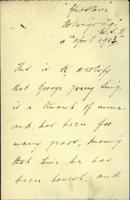 April 1903
This is to certify
that George young Luig,
is a tenant of mine.
and, has been for
many years, during
that time, he has
been honest, and